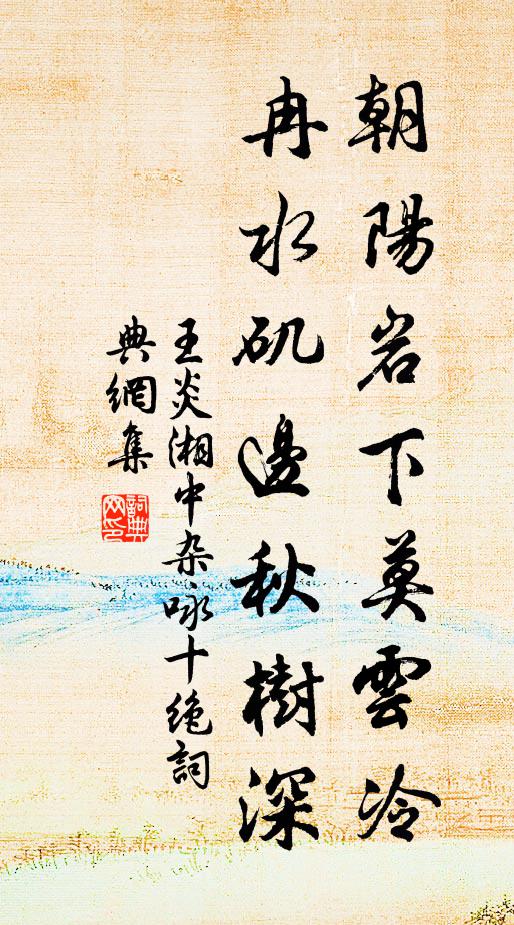 朝陽岩下莫雲冷
冉水矶邊秋樹深
王炎湘中杂咏十绝詞
典網集
詞典網印